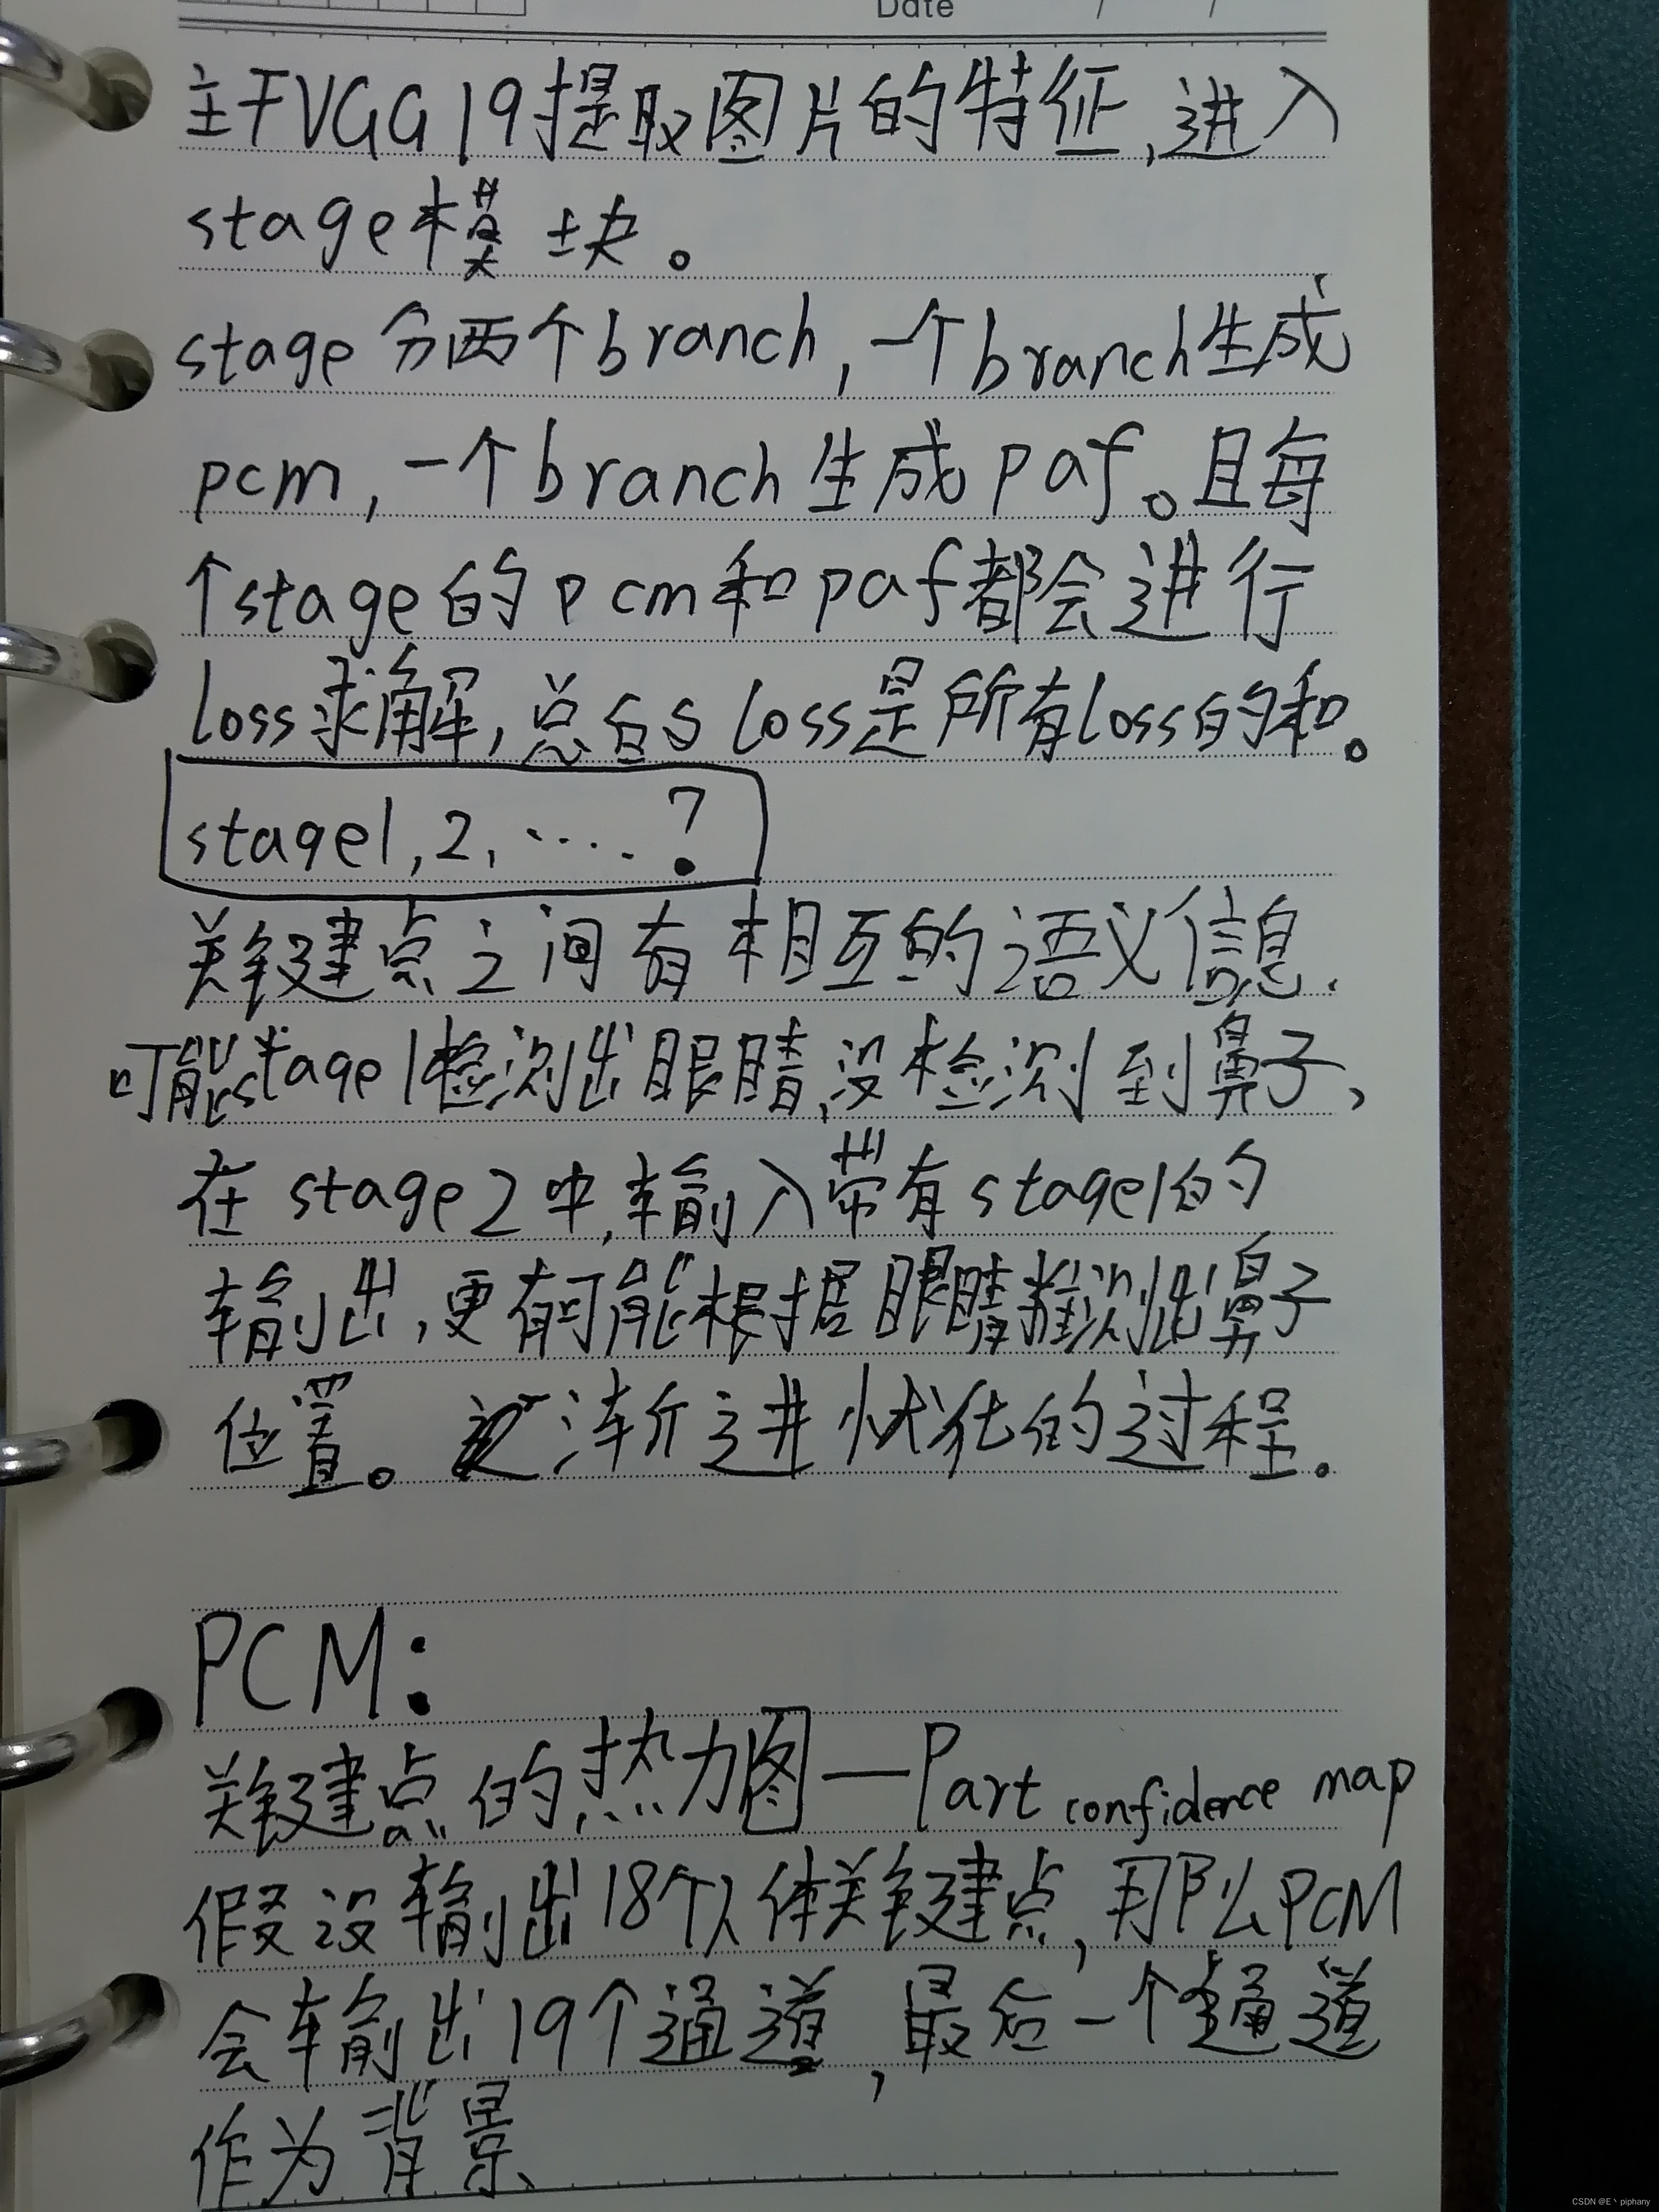 Date / /
主干VGG19提取图片的特征,进入
stage模块。
stage分两个branch,一个branch生成
pcm,一个branch生成paf。且每
个stage的pcm和paf都会进行
loss求解,总的loss是所有loss的和。
stage1,2,…. ?
关键点之间有相互的语义信息.
可能stage1检测出眼睛,没检测到鼻子,
在stage2中,输入带有stage1的
输出,更有可能根据眼睛推测出鼻子
位置。渐进状化的过程.
PCM:
关键点的热力图—Part confidence map
假设输出18个人体关键点,那么PCM
会输出19个通道,最后一个通道
作为背景
CSDN @E丶piphany